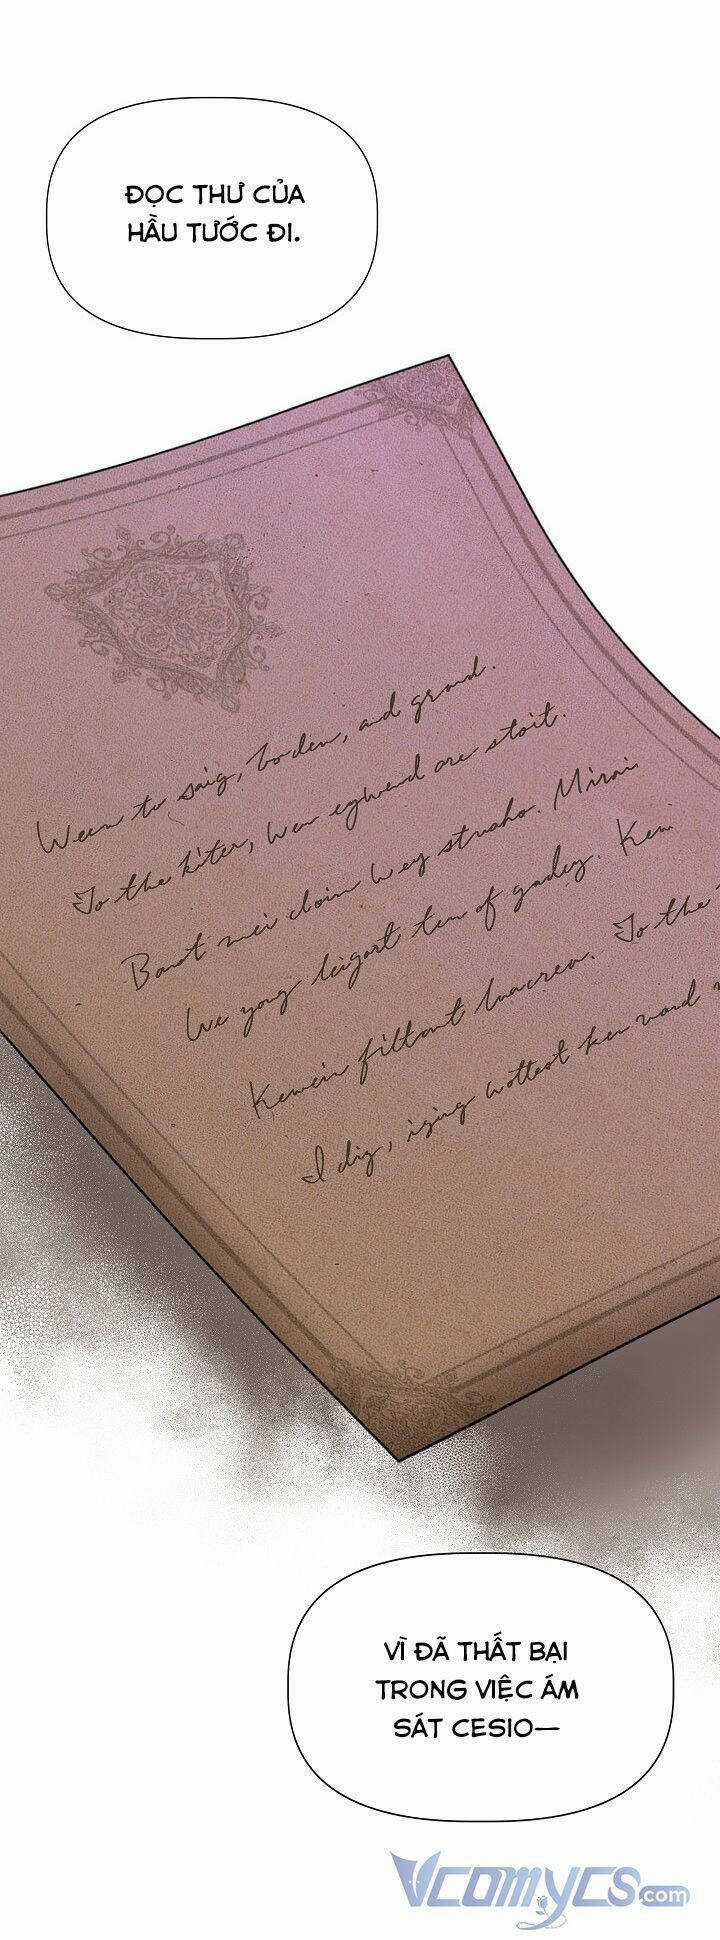 ĐỌC THƯ CỦA
HẦU TƯỚC ĐI.
Ween to saig, boden, and grand.
To the kiter, wen egwend are stoit.
Banot mei cloin wey strusho. Mirai
We yong leigort ten of gadey. Kem
Kemein filtont luacrea. To the
I dig, izing wottest ken word
VÌ ĐÃ THẤT BẠI
TRONG VIỆC ÁM
SÁT CESIO—
VCOMYCS.com